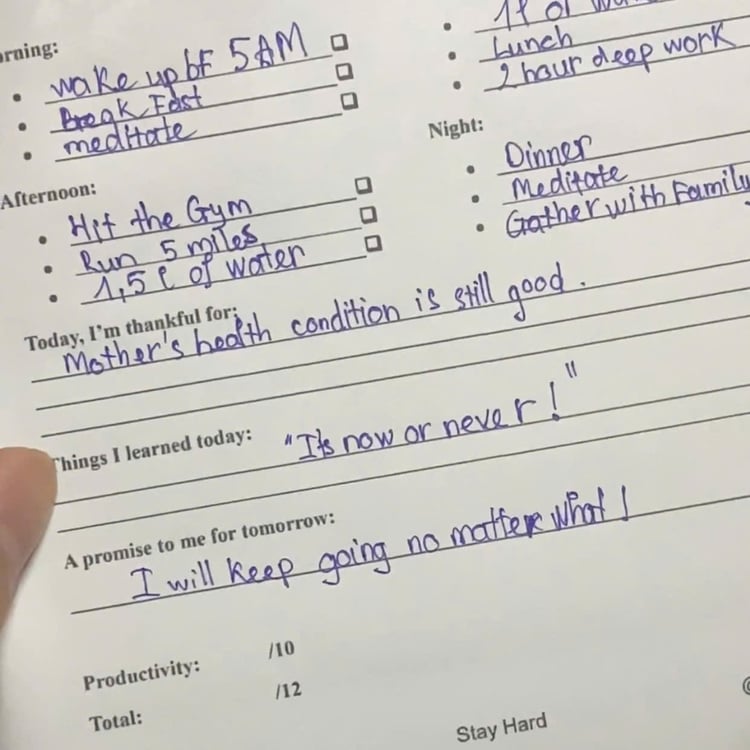 wake up bf 5AM
Break Fast
meditate
Lunch
2 hour deep work
Afternoon:
Hit the Gym
Run 5 miles
1,5 l of water
Night:
Dinner
Meditate
Gather with Family
Today, I'm thankful for:
Mother's health condition is still good.
Things I learned today: "It's now or never!"
A promise to me for tomorrow:
I will keep going no matter what!
Productivity: /10
Total: /12
Stay Hard